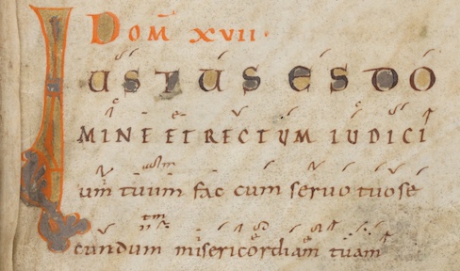 DOM̄ XVII·
IUSTUS ES DO
MINE ET RECTUM IUDICI
um tuum fac cum servo tuo se
cundum misericordiam tuam